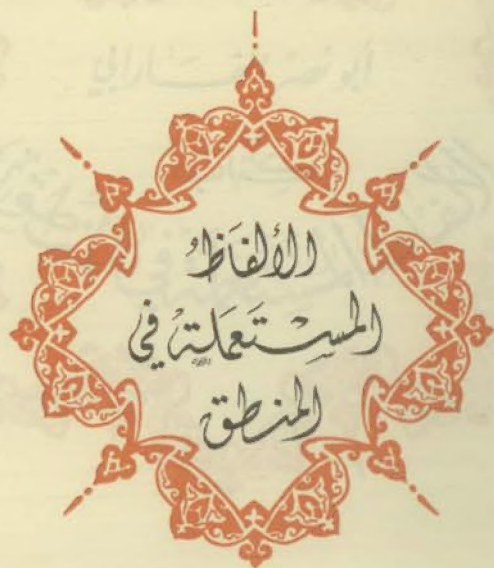 الألفاظ
المستعملة في
المنطق